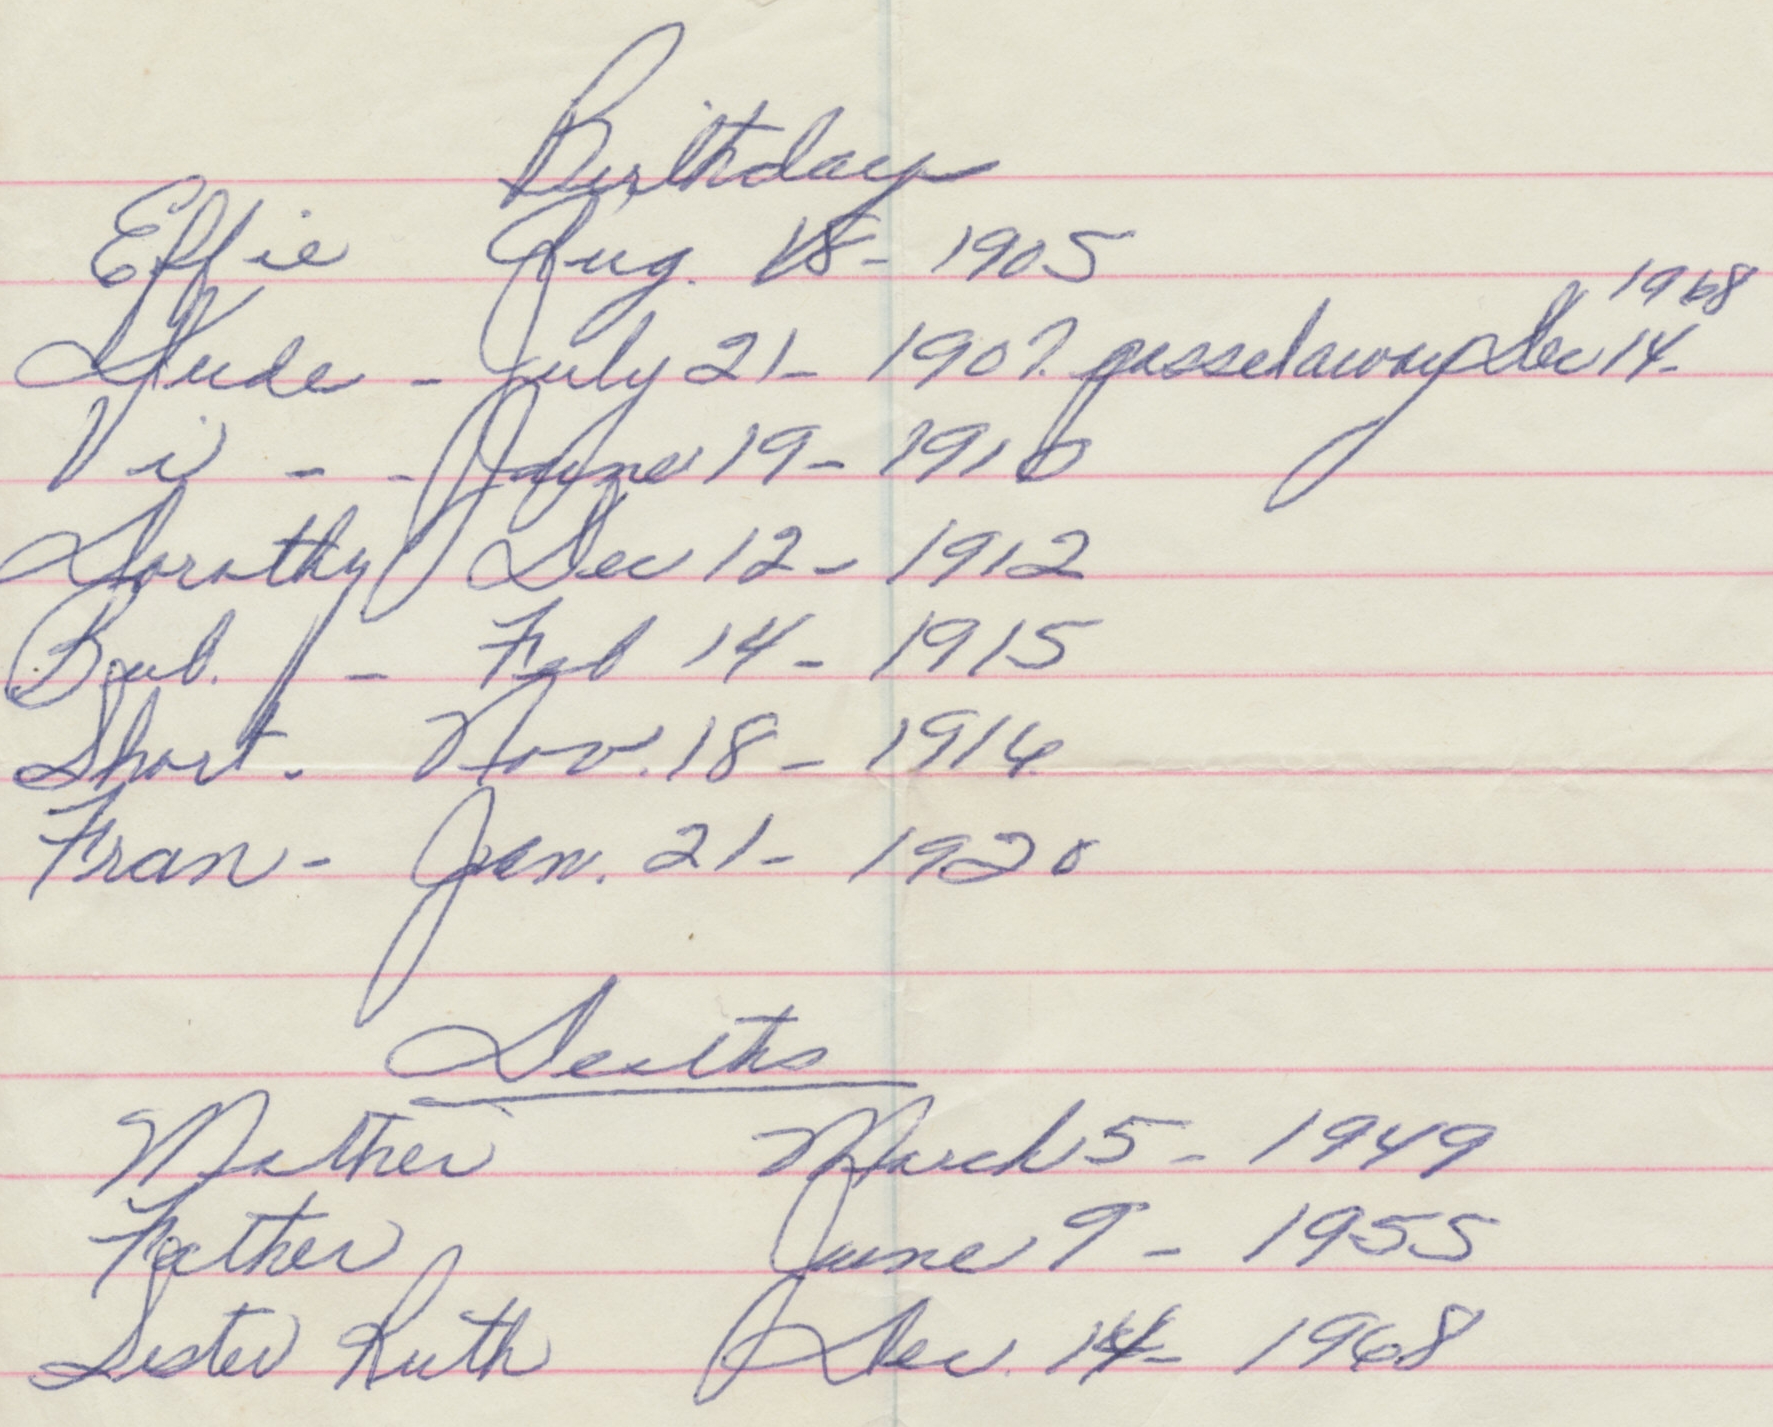 Birthday
Effie Aug. 18 - 1905
Dude - July 21 - 1907. passed away Dec 14 - 1968
Vi - - June 19 - 1910
Dorothy Dec 12 - 1912
Bub. - Feb 14 - 1915
Short. Nov. 18 - 1916
Fran - Jan. 21 - 1920
Deaths
Mother March 5 - 1949
Father June 9 - 1955
Sister Ruth Dec. 14 - 1968